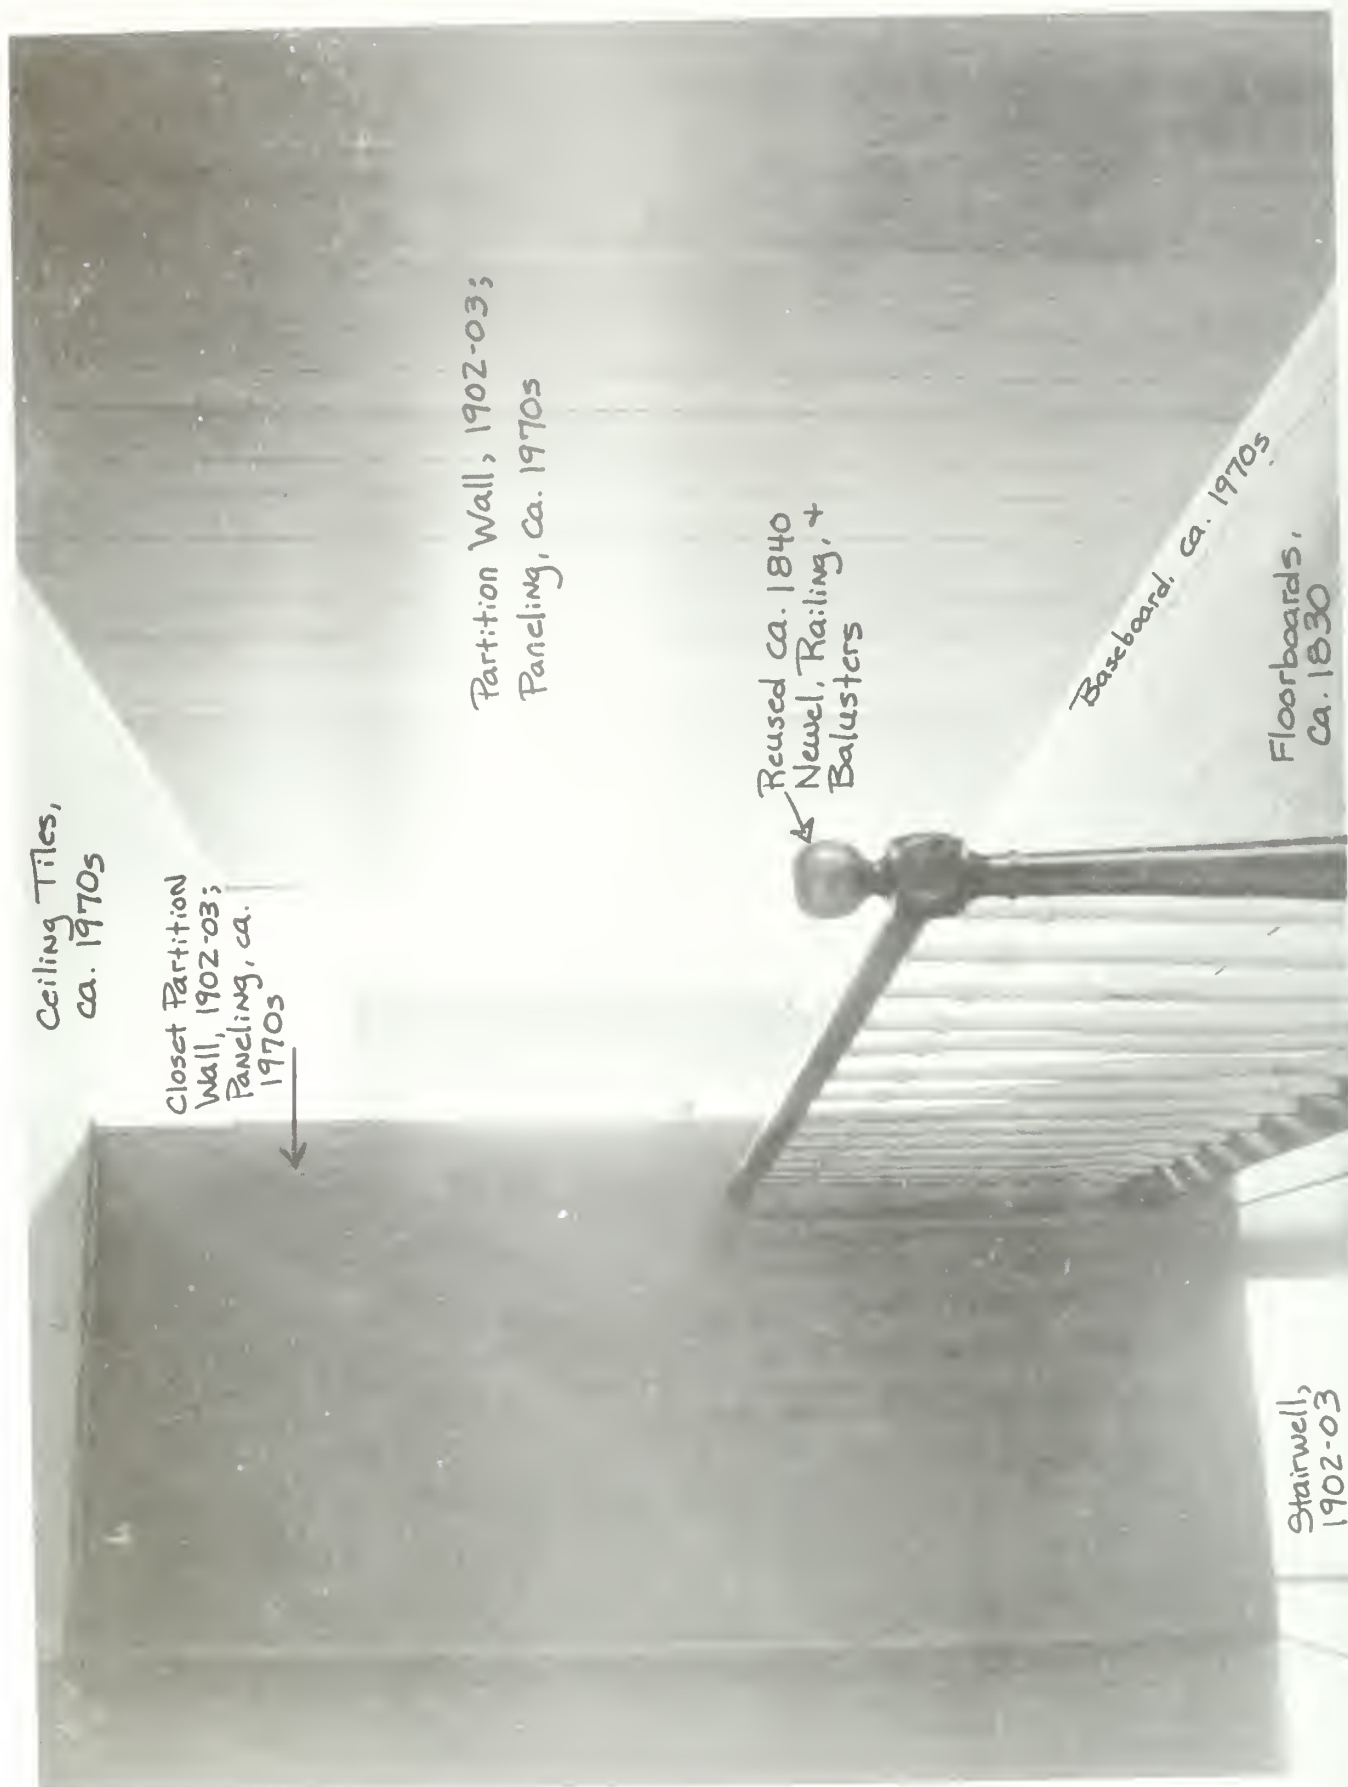 Ceiling Tiles,
ca. 1970s
Closet Partition
Wall, 1902-03;
Paneling, ca.
1970s
Partition Wall, 1902-03;
Paneling, ca. 1970s
Reused ca. 1840
Newel, Railing, +
Balusters
Baseboard, ca. 1970s
Floorboards,
ca. 1830
Stairwell,
1902-03